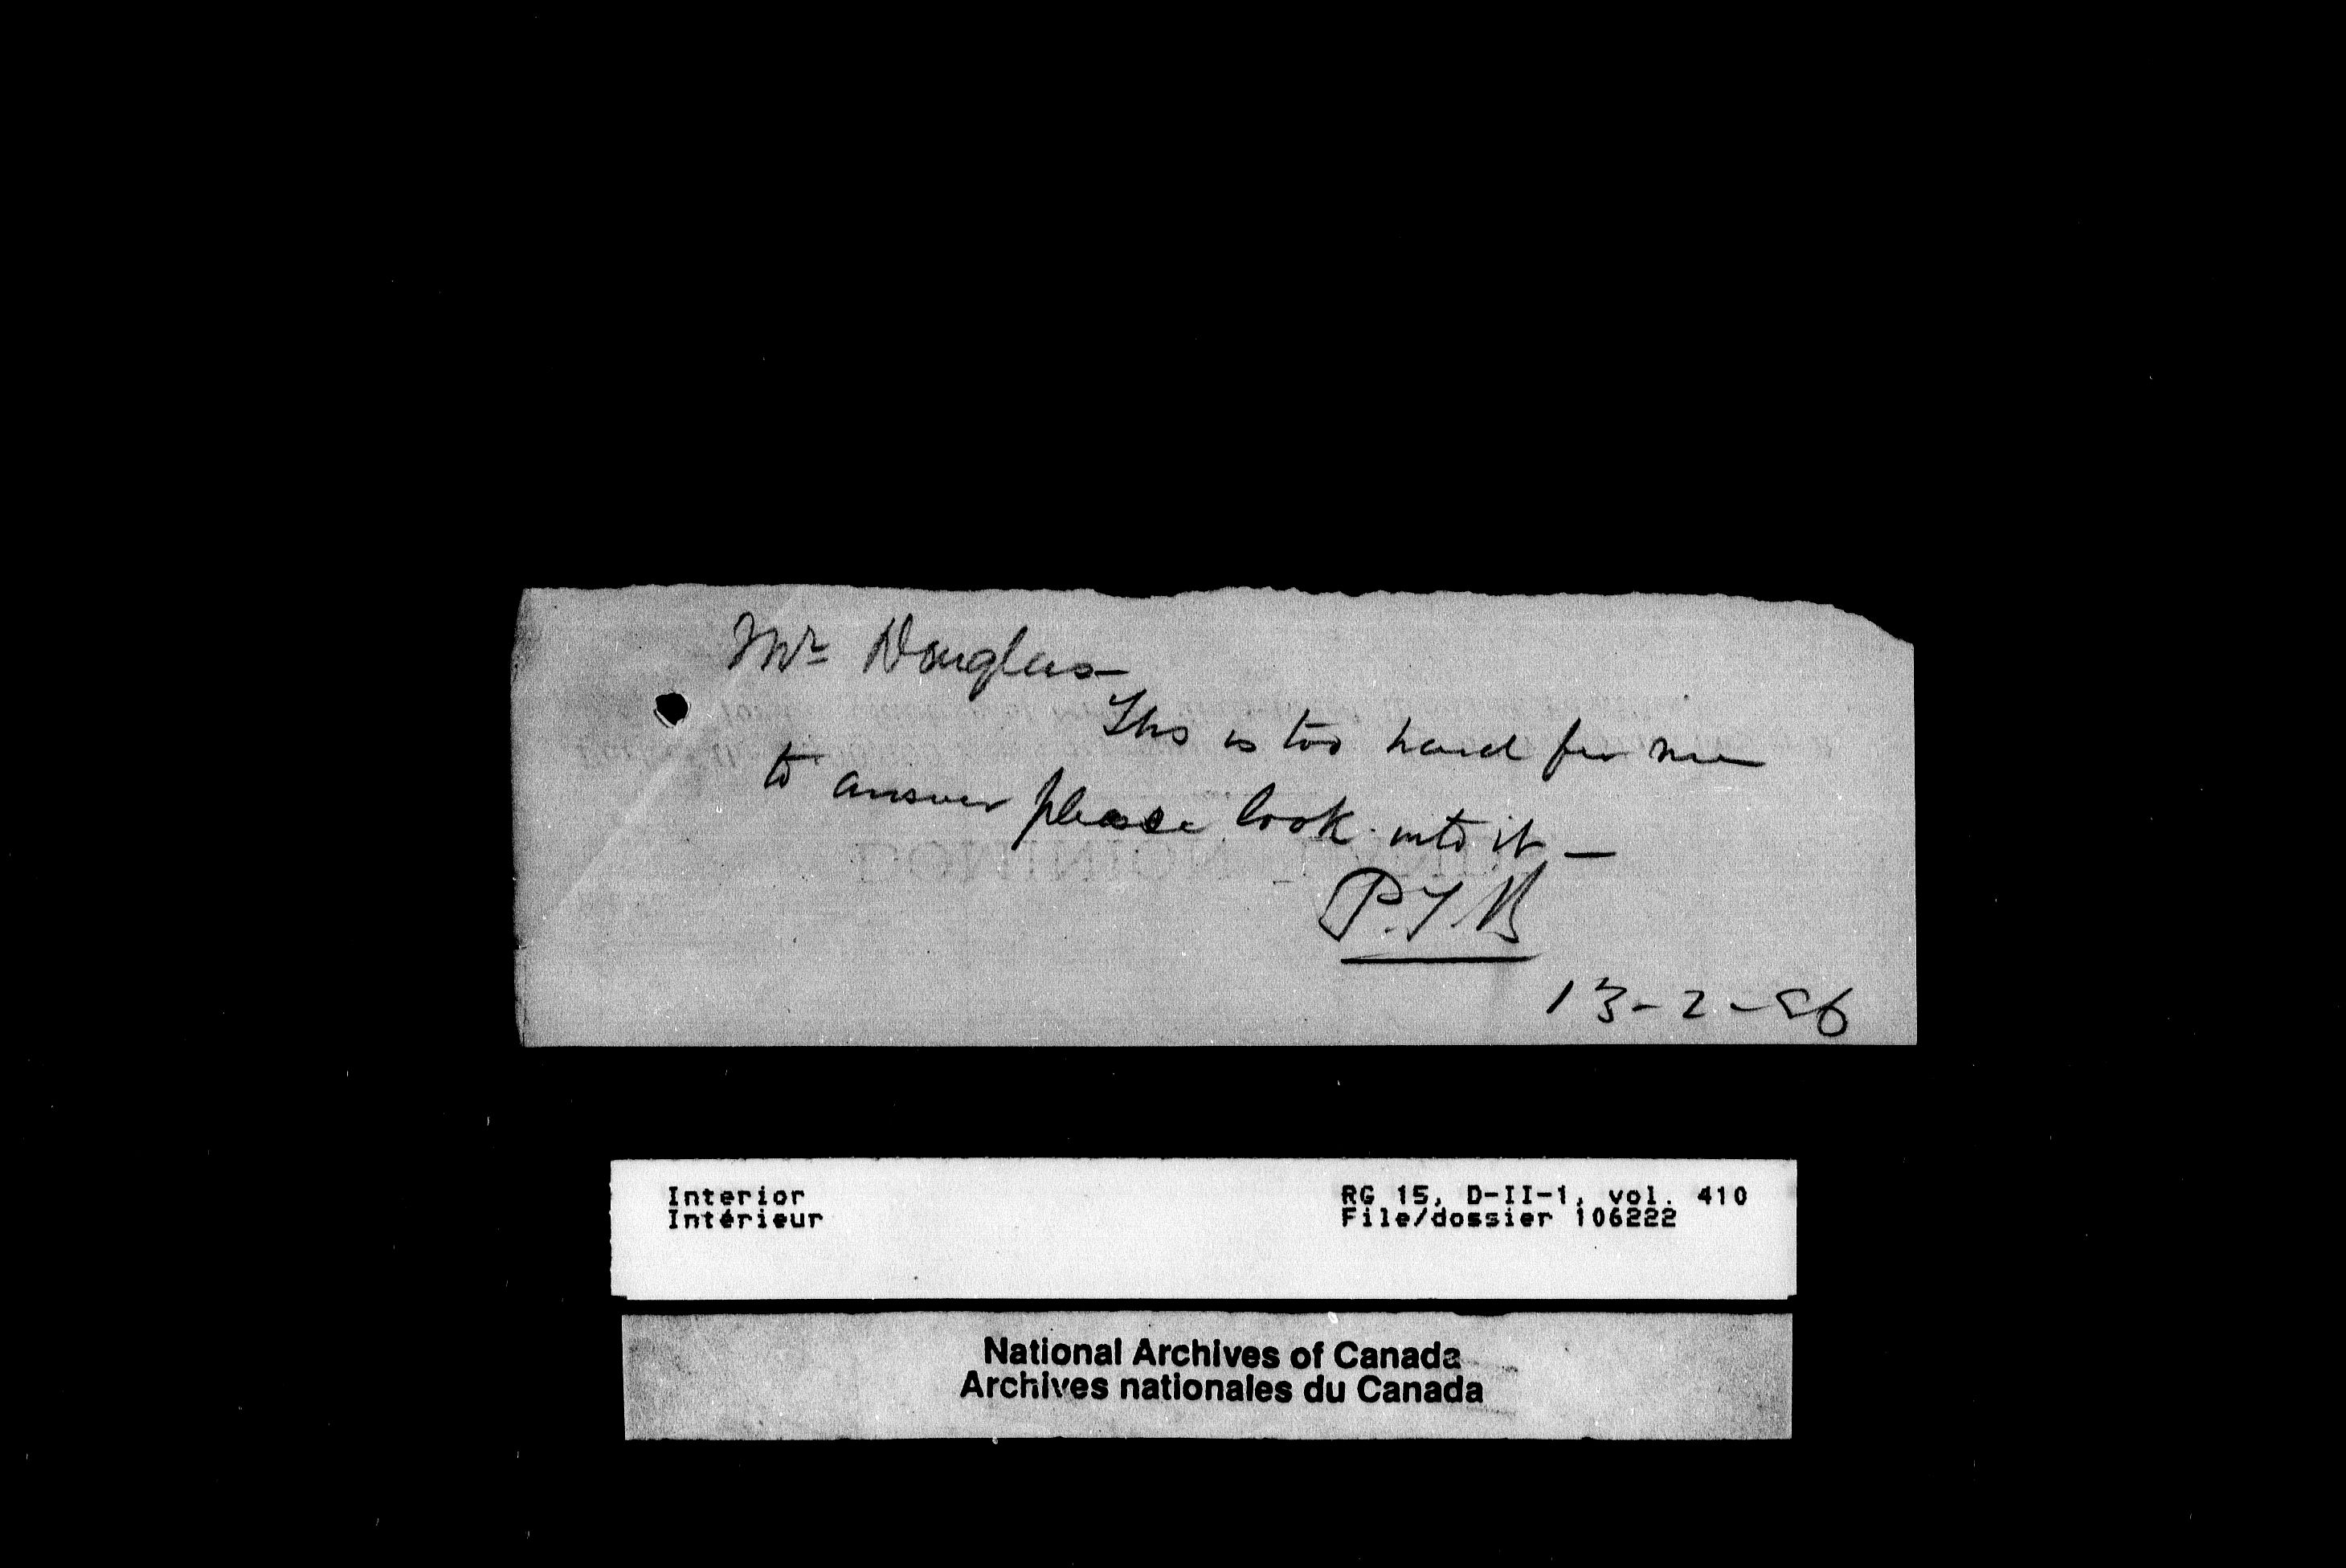 Mr Douglas—
This is too hard for me
to answer please look into it —
P.T.B
13-2-86
DOMINION
Interior
Intérieur
RG 15, D-II-1, vol. 410
File/dossier 106222
National Archives of Canada
Archives nationales du Canada